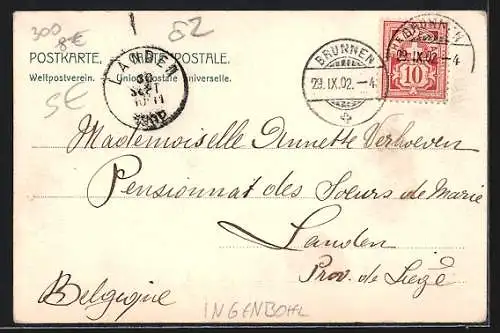 300
8€
82
5€
POSTKARTE. POSTALE.
Weltpostverein. Union postale universelle.
LANDEN
30
SEPT
1902
BRUNNEN
29.IX.02.–4
BRUNNEN
29.IX.02.–4
10
Mademoiselle Annette Verhoeven
Pensionnat des Soeurs de Marie
Landen
Prov. de Liège
Belgique
INGENBOHL